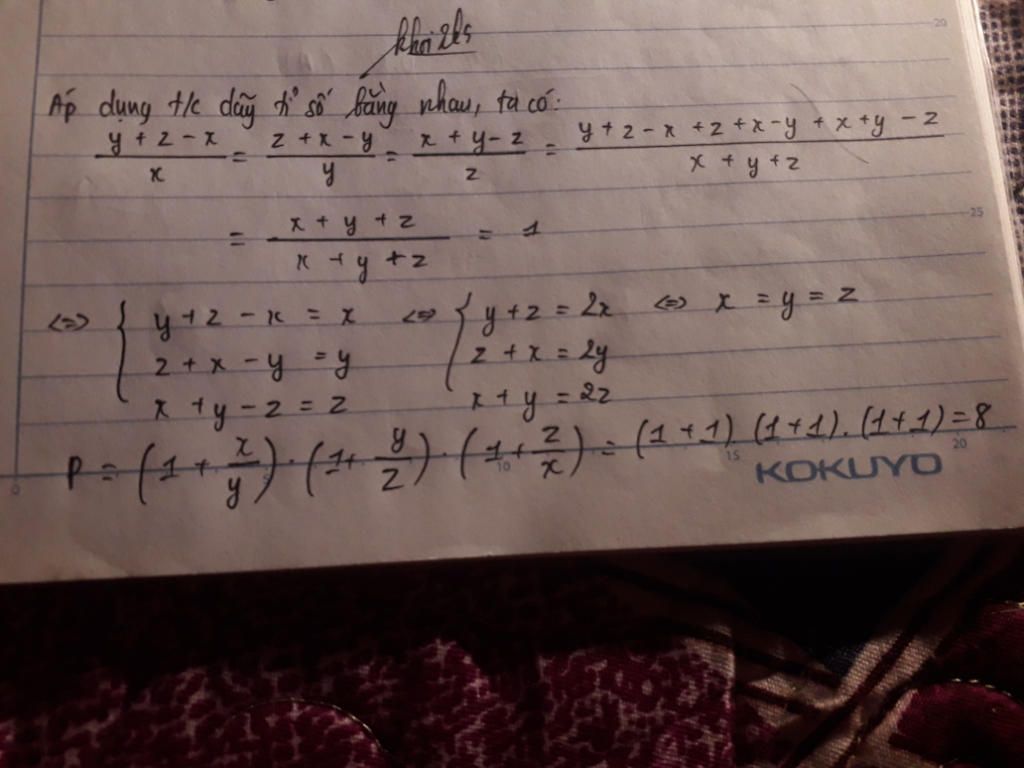 khoi2k5
Áp dụng t/c dãy tỉ số bằng nhau, ta có:
(y + z - x)/x = (z + x - y)/y = (x + y - z)/z = (y + z - x + z + x - y + x + y - z)/(x + y + z)
= (x + y + z)/(x + y + z) = 1
<=> { y + z - x = x <=> { y + z = 2x <=> x = y = z
z + x - y = y z + x = 2y
x + y - z = z x + y = 2z
P = (1 + x/y) . (1 + y/z) . (1 + z/x) = (1 + 1) (1 + 1) . (1 + 1) = 8
KOKUYO
0 5 10 15 20
20
25